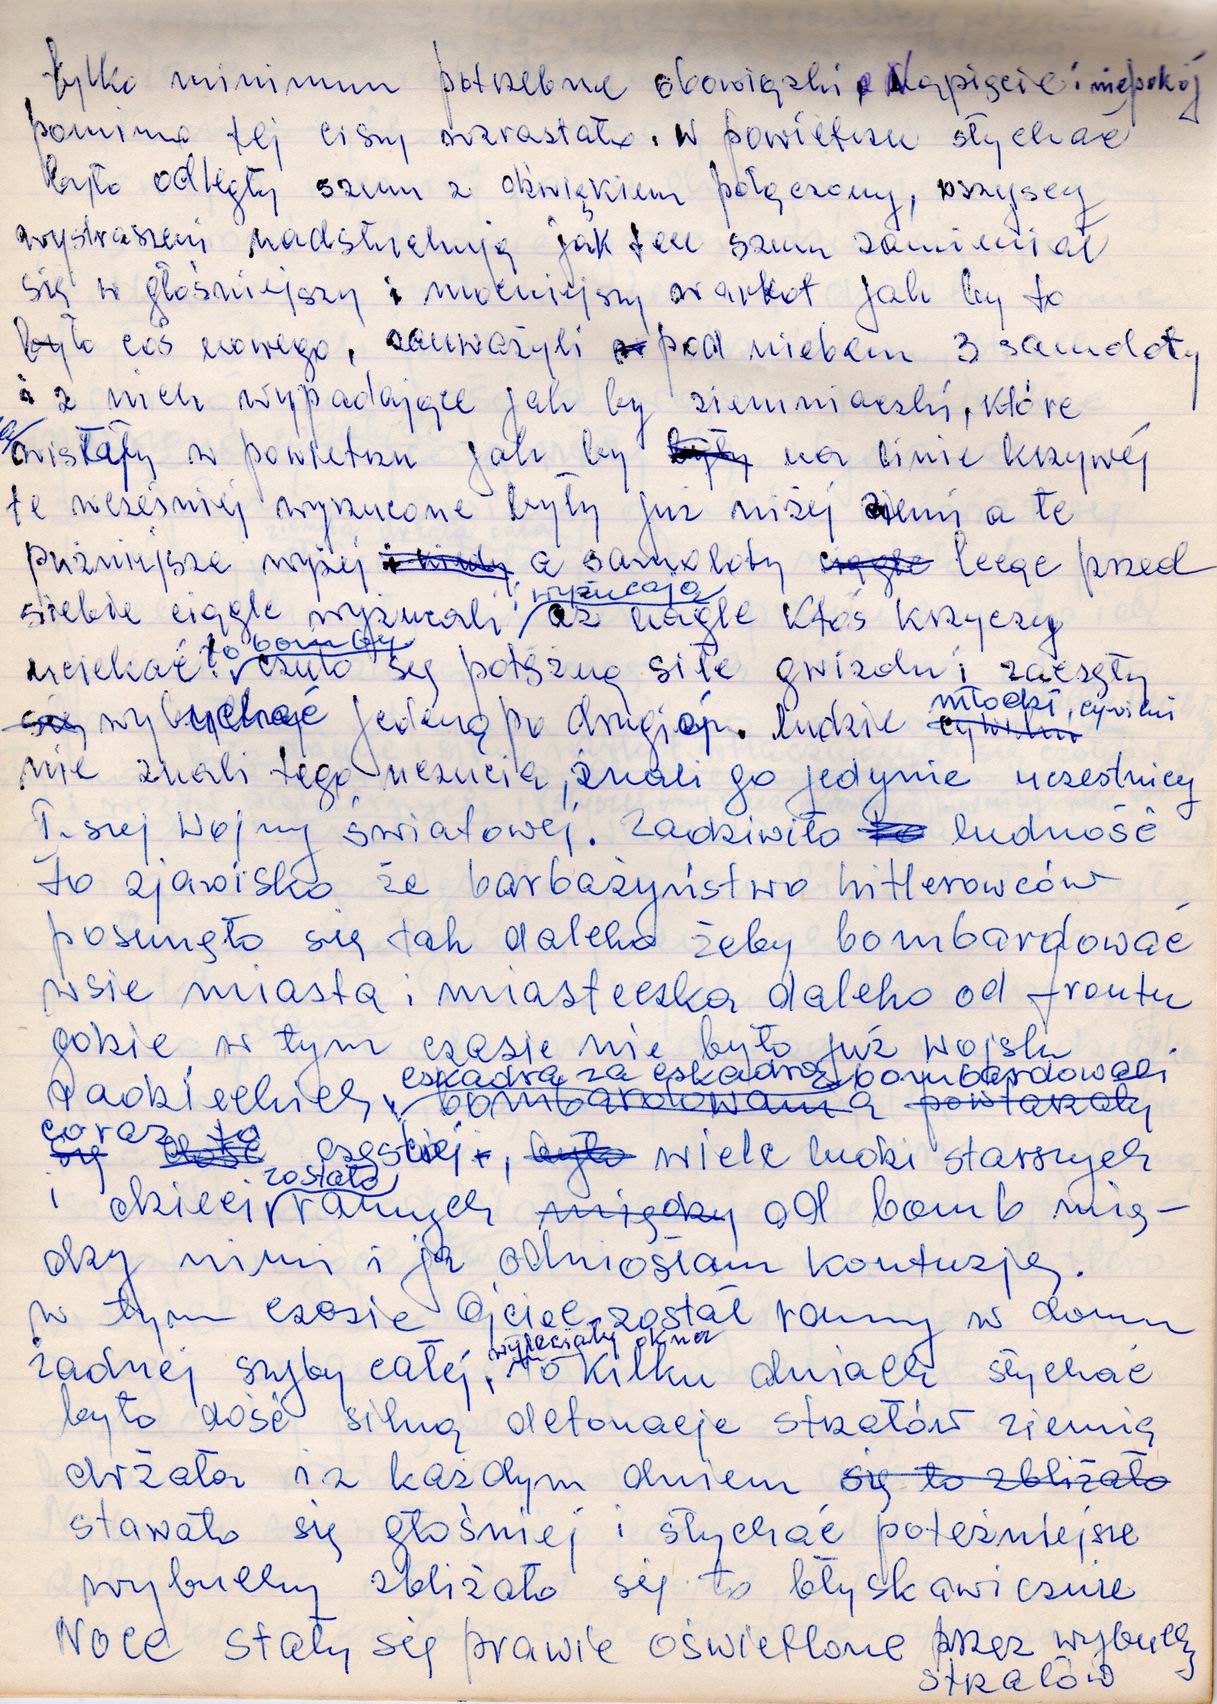 tylko minimum potrzebne obowiązki, Napięcie i niepokój
pomimo tej ciszy wzrastało. w powietrzu słychać
było odległy szum z dźwiękiem połączony, wszyscy
wystraszeni nadsłuchują jak ten szum zamieniał
się w głośniejszy i mocniejszy warkot jak by to
było coś nowego, zauważyli pod niebem 3 samoloty
i z nich wypadające jak by ziemniaczki, które
zwisłały w powietrzu jak by były na linie krzywej
te wcześniej wyrzucone były już niżej ziemi a te
puźniejsze wyżej i kiedy a samoloty ciągle lecąc przed
wyrzucają
siebie ciągle wyżucali, aż nagle Ktoś krzyczy
to bomby
uciekać! czuło się potężną siłe gwizdu i zaczęły
młodzi, cywilni
się wybuchać jedeną po drugiej. ludzie cywilni
nie znali tego uczucia, znali go jedynie uczestnicy
I-szej Wojny światowej. Zadziwiło to ludność
to zjawisko że barbażyństwo hitlerowców
posunęło się tak daleko żeby bombardować
wsie miasta i miasteczka daleko od frontu
gdzie w tym czasie nie było już wojsk
eskadra za eskadrą bombardowali
Radzieckich, bombardowania powtarzały
coraz to
się dość częściej, było wiele ludzi starszych
zostało
i dzieci rannych między od bomb mię-
dzy nimi i ja odniosłam kontuzję.
w tym czasie Ojciec został ranny w domu
wyleciały okna
żadnej szyby całej, Po Kilku dniach słychać
było dość silną detonacje strzałów ziemią
drżała i z każdym dniem się to zbliżało
stawało się głośniej i słychać potężniejsze
wybuchy zbliżało się to błyskawicznie
Noce stały się prawie oświetlone przez wybuchy
strzałów